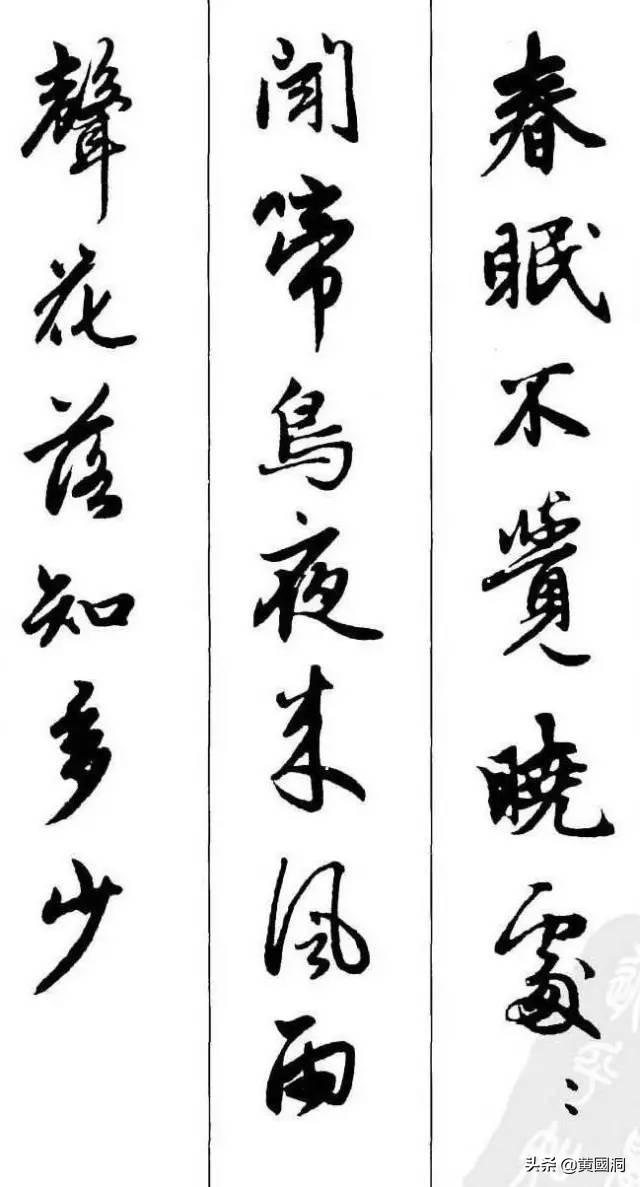 春眠不覺曉處〻
聞啼鳥夜来風雨
聲花落知多少
头条 @黄國洞